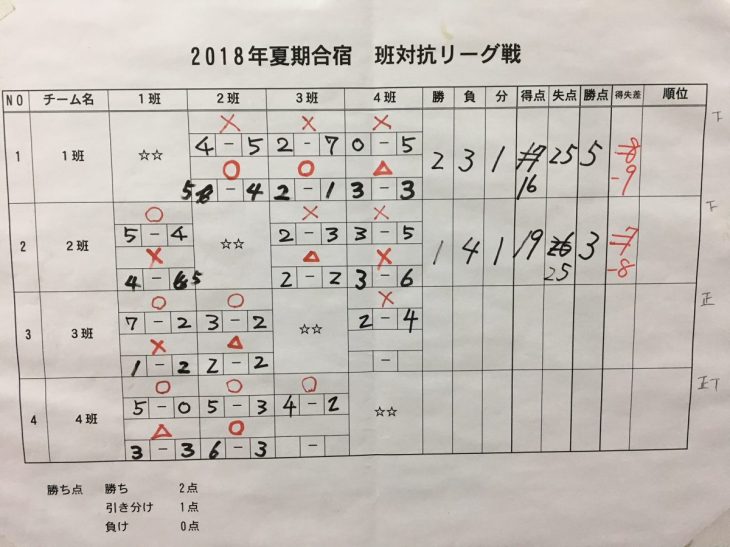 2018年夏期合宿 班対抗リーグ戦
NO チーム名 1班 2班 3班 4班 勝 負 分 得点 失点 勝点 得失差 順位
× × ×
4 - 5 2 - 7 0 - 5
1 1班 ☆☆ 2 3 1 17 25 5 -8
○ ○ △ 16 -9
5 6 - 4 2 - 1 3 - 3
T
○ × ×
5 - 4 2 - 3 3 - 5
2 2班 ☆☆ 1 4 1 19 26 3 -7
× △ × 25 -8
4 - 6 5 2 - 2 3 - 6
T
○ ○ ×
7 - 2 3 - 2 2 - 4
3 3班 ☆☆
× △
1 - 2 2 - 2 -
正
○ ○ ○
5 - 0 5 - 3 4 - 2
4 4班 ☆☆
△ ○
3 - 3 6 - 3 -
正T
勝ち点 勝ち 2点
引き分け 1点
負け 0点